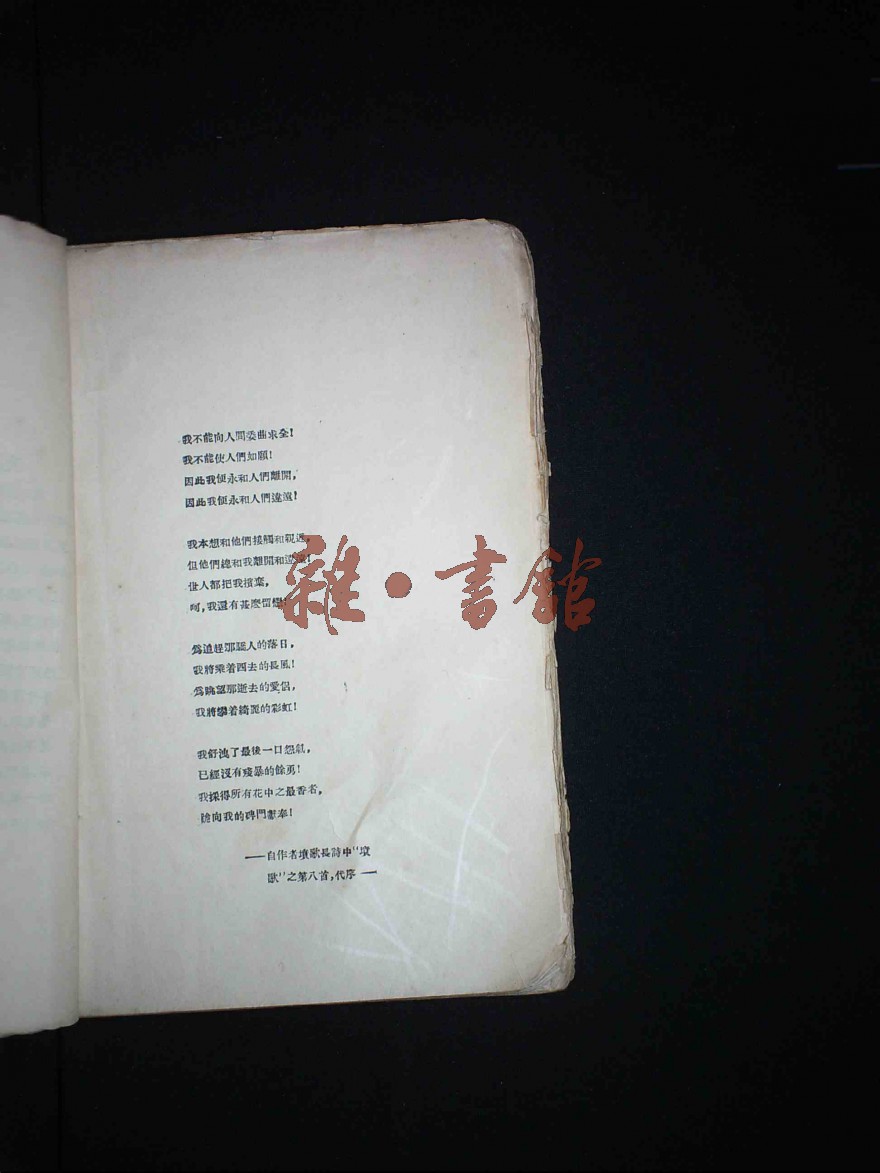 我不能向人間委曲求全！
我不能使人們如願！
因此我便永和人們離開，
因此我便永和人們違遠！
我本想和他們接觸和親近，
但他們總和我離開和違遠！
世人都把我擯棄，
呵，我還有甚麼留戀！
為追趕那驕人的落日，
我將乘着西去的長風！
為眺望那逝去的愛侶，
我將攀着綺麗的彩虹！
我舒洩了最後一口怨氣，
已經沒有殘暴的餘勇！
我採得所有花中之最香者，
向我的碑門獻奉！
——自作者墳歌長詩中"墳
歌"之第八首，代序——
雜·書館